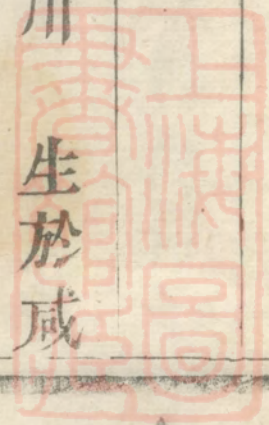 川 生於咸
上海圖
書館藏